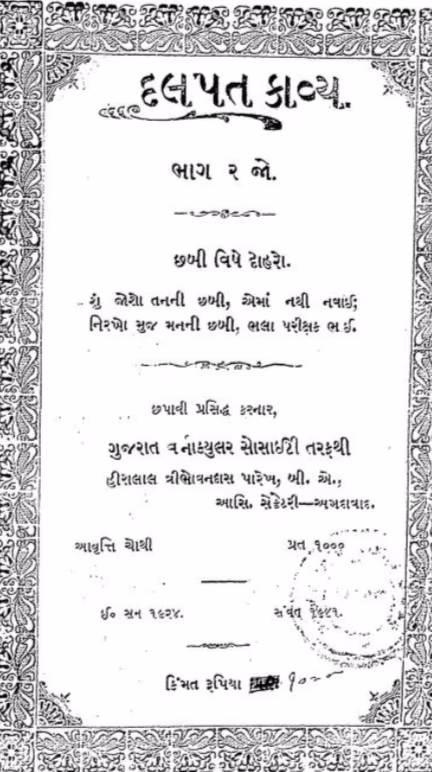 દલપત કાવ્ય.
ભાગ ૨ જો.
છબી વિષે દોહરો.
શું જોશો તનની છબી, એમાં નથી નવાઈ;
નિરખો મુજ મનની છબી, ભલા પરીક્ષક ભાઈ.
છપાવી પ્રસિદ્ધ કરનાર,
ગુજરાત વર્નાક્યુલર સોસાઈટી તરફથી
હીરાલાલ ત્રીભોવનદાસ પારેખ, બી. એ.,
આસિ. સેક્રેટરી—અમદાવાદ.
આવૃત્તિ ચોથી પ્રત ૧૦૦૦
ઈ૦ સન ૧૯૨૪. સંવત
કિંમત રૂપિયા ૧-૦-૦